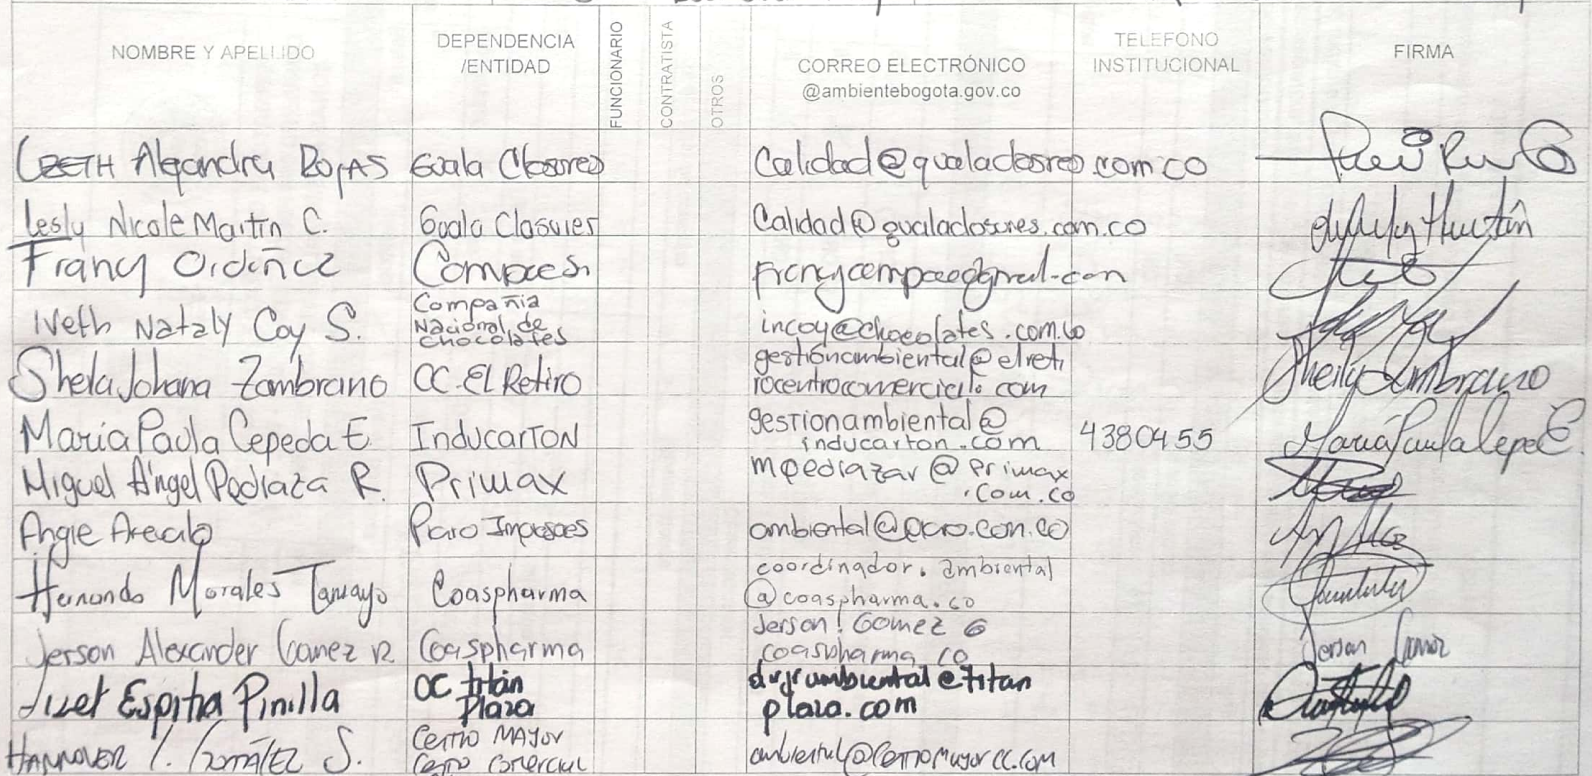 NOMBRE Y APELLIDO DEPENDENCIA /ENTIDAD FUNCIONARIO CONTRATISTA OTROS CORREO ELECTRÓNICO @ambientebogota.gov.co TELEFONO INSTITUCIONAL FIRMA
Alejandra ROJAS Guala Closures Calidad@gualaclosures.com.co
Lesly Nicole Martin C. Guala Closures Calidad@gualaclosures.com.co
Francy Ordiñez
Iveth Nataly Coy S. Compañia Nacional de chocolates incoy@chocolates.com.co
Shela Johana Zambrano CC. El Retiro gestionambiental@elreti
rocentrocomercial.com
María Paula Cepeda E. INDUCARTON gestionambiental@
inducarton.com 4380455 María Paula Cepe E.
Miguel Ángel Pedraza R. Primax mpedrazar@Primax
.com.co
Angie Arevalo ambiental@
Hernando Morales Tamayo Coaspharma coordinador.ambiental
@coaspharma.co
Jerson Alexander Gomez R. Coaspharma Jerson.Gomez@
coaspharma.co
Espitia Pinilla CC titán Plaza titan
plaza.com
HANNOVER González S. Centro MAYOR Centro Comercial ambiental@CentroMayorcc.com